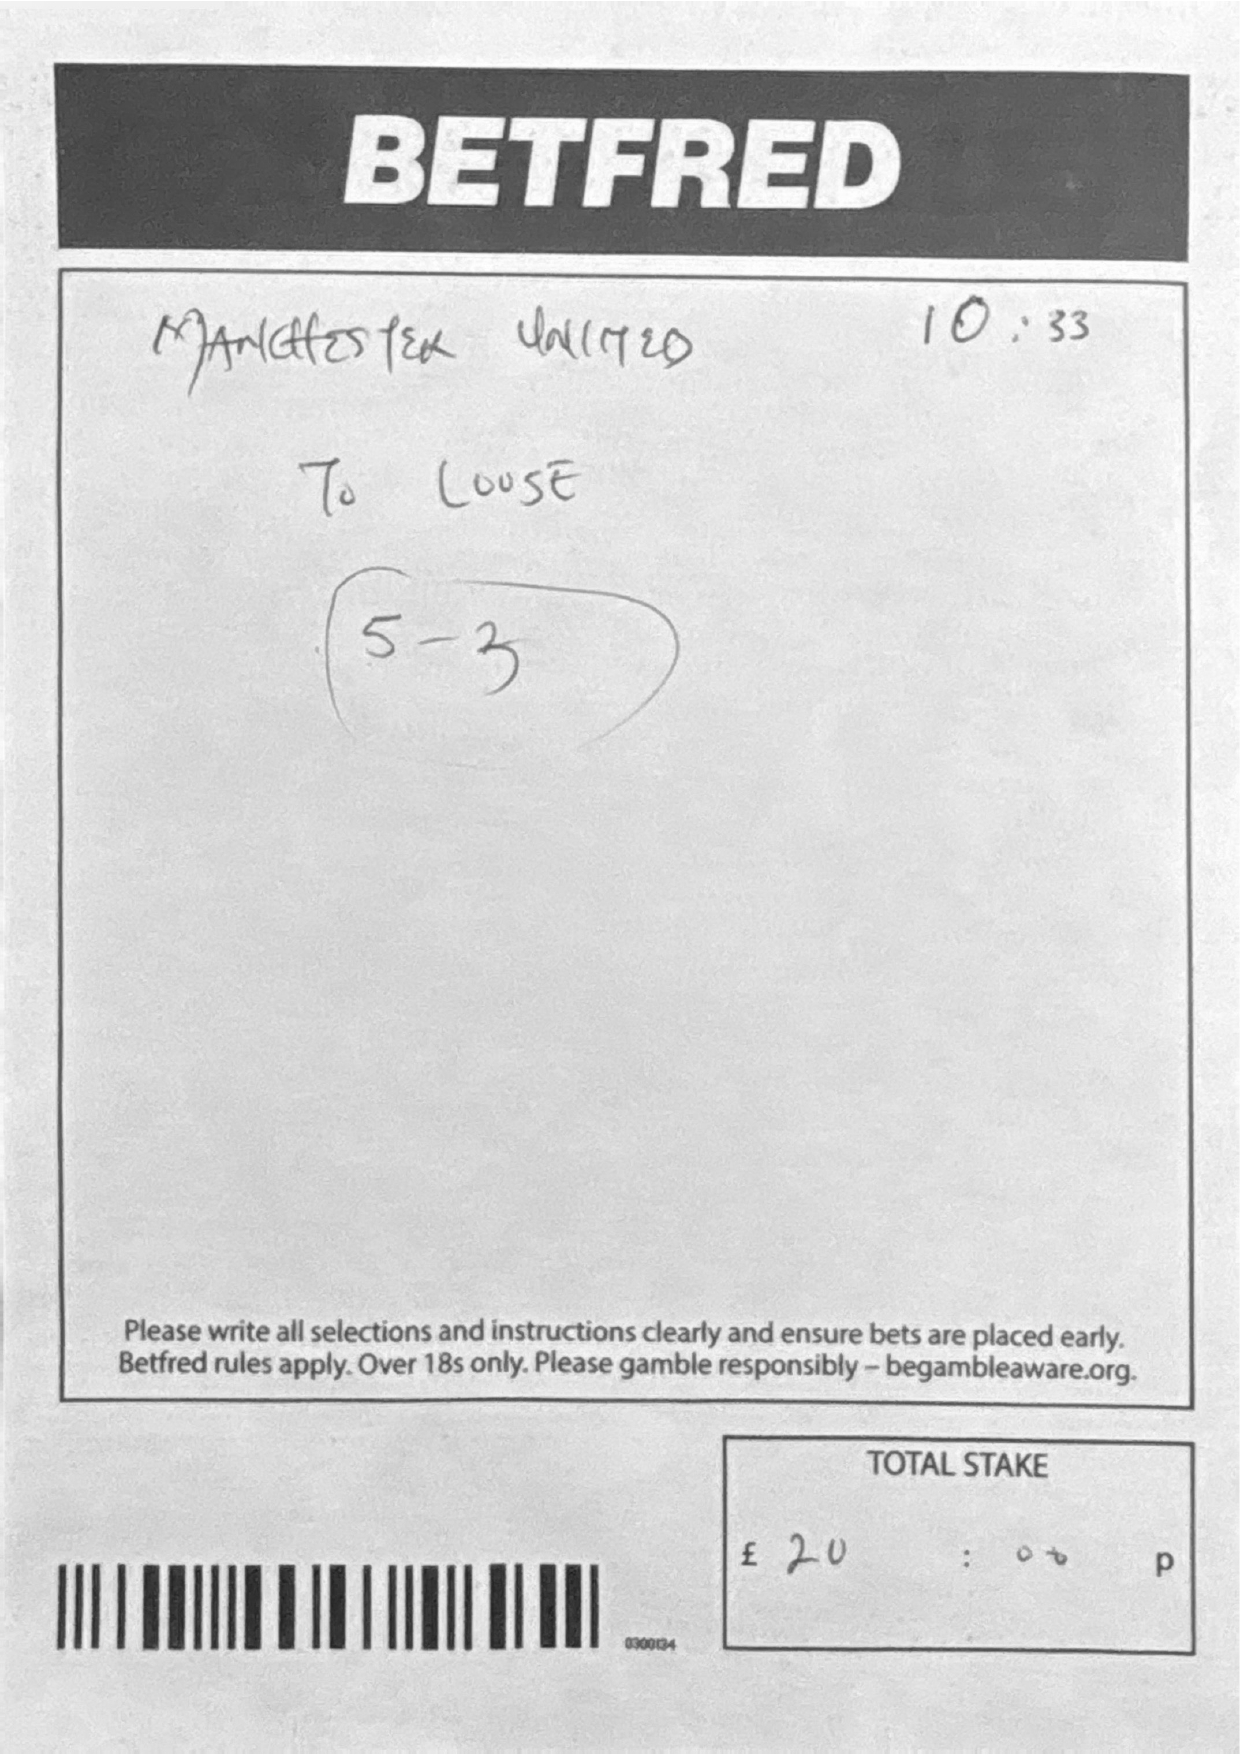 BETFRED
MANCHESTER UNITED 10:33
TO LOOSE
5-3
Please write all selections and instructions clearly and ensure bets are placed early.
Betfred rules apply. Over 18s only. Please gamble responsibly – begambleaware.org.
TOTAL STAKE
£ 20 : 00 p
0300134